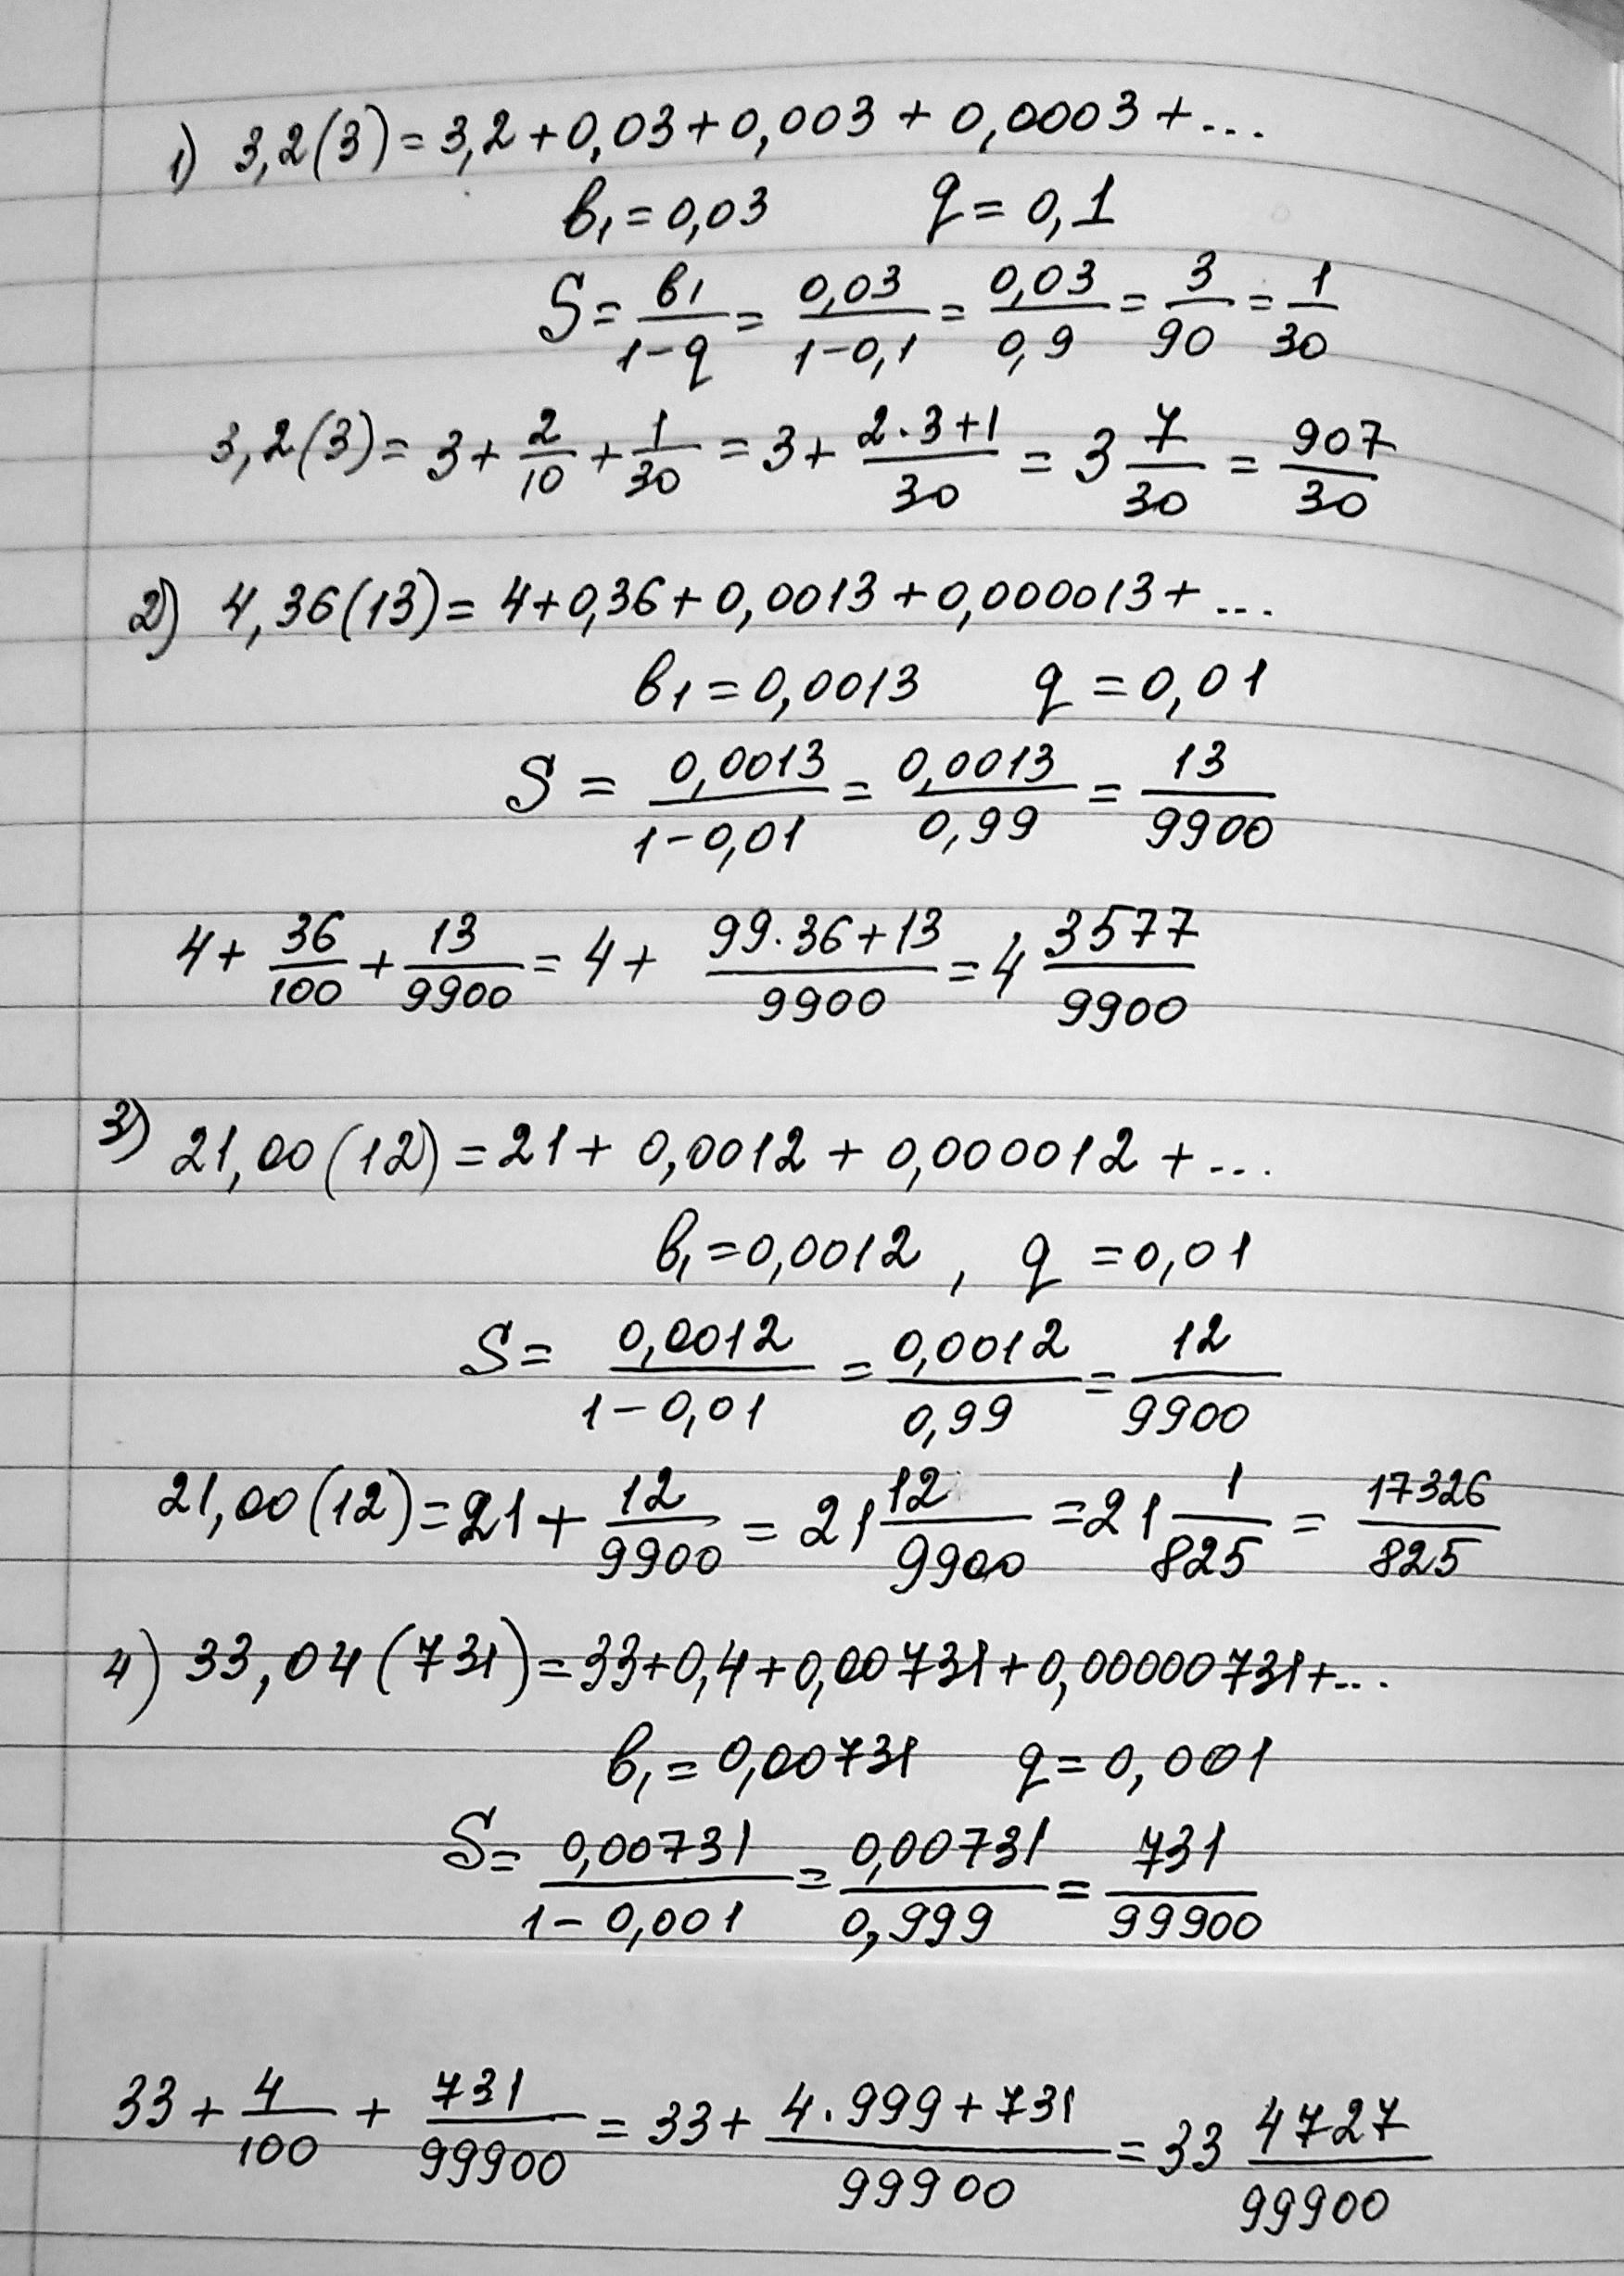 1) 3,2(3) = 3,2 + 0,03 + 0,003 + 0,0003 + ...
b₁ = 0,03 q = 0,1
S = b₁/(1-q) = 0,03/(1-0,1) = 0,03/0,9 = 3/90 = 1/30
3,2(3) = 3 + 2/10 + 1/30 = 3 + (2·3+1)/30 = 3 7/30 = 907/30
2) 4,36(13) = 4 + 0,36 + 0,0013 + 0,000013 + ...
b₁ = 0,0013 q = 0,01
S = 0,0013/(1-0,01) = 0,0013/0,99 = 13/9900
4 + 36/100 + 13/9900 = 4 + (99·36+13)/9900 = 4 3577/9900
3) 21,00(12) = 21 + 0,0012 + 0,000012 + ...
b₁ = 0,0012, q = 0,01
S = 0,0012/(1-0,01) = 0,0012/0,99 = 12/9900
21,00(12) = 21 + 12/9900 = 21 12/9900 = 21 1/825 = 17326/825
4) 33,04(731) = 33 + 0,4 + 0,00731 + 0,00000731 + ...
b₁ = 0,00731 q = 0,001
S = 0,00731/(1-0,001) = 0,00731/0,999 = 731/99900
33 + 4/100 + 731/99900 = 33 + (4·999+731)/99900 = 33 4727/99900